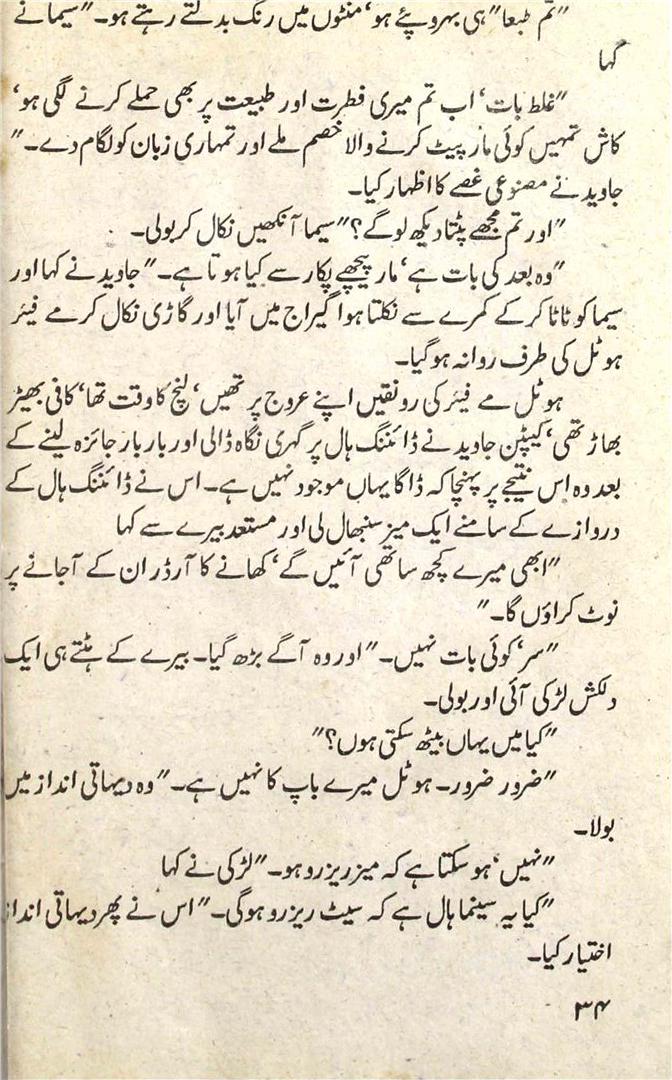 "تم طبعا" ہی بہروپیئے ہو' منٹوں میں رنگ بدلتے رہتے ہو۔" سیما نے
کہا
"غلط بات' اب تم میری فطرت اور طبیعت پر بھی حملے کرنے لگی ہو'
کاش تمہیں کوئی مار پیٹ کرنے والا خصم ملے اور تمہاری زبان کو لگام دے۔"
جاوید نے مصنوعی غصے کا اظہار کیا۔
"اور تم مجھے پٹتا دیکھ لو گے؟" سیما آنکھیں نکال کر بولی۔
"وہ بعد کی بات ہے' مار پیچھے پکار سے کیا ہوتا ہے۔" جاوید نے کہا اور
سیما کو ٹاٹا کر کے کمرے سے نکلتا ہوا گیراج میں آیا اور گاڑی نکال کر مے فیئر
ہوٹل کی طرف روانہ ہو گیا۔
ہوٹل مے فیئر کی رونقیں اپنے عروج پر تھیں' لنچ کا وقت تھا' کافی بھیڑ
بھاڑ تھی' کیپٹن جاوید نے ڈائننگ ہال پر گہری نگاہ ڈالی اور بار بار جائزہ لینے کے
بعد وہ اس نتیجے پر پہنچا کہ ڈاگا یہاں موجود نہیں ہے۔ اس نے ڈائننگ ہال کے
دروازے کے سامنے ایک میز سنبھال لی اور مستعد بیرے سے کہا
"ابھی میرے کچھ ساتھی آئیں گے' کھانے کا آرڈر ان کے آجانے پر
نوٹ کراؤں گا۔"
"سر' کوئی بات نہیں۔" اور وہ آگے بڑھ گیا۔ بیرے کے ہٹتے ہی ایک
دلکش لڑکی آئی اور بولی۔
"کیا میں یہاں بیٹھ سکتی ہوں؟"
"ضرور ضرور۔ ہوٹل میرے باپ کا نہیں ہے۔" وہ دیہاتی انداز میں
بولا۔
"نہیں' ہو سکتا ہے کہ میز ریزرو ہو۔" لڑکی نے کہا
"کیا یہ سینما ہال ہے کہ سیٹ ریزرو ہوگی۔" اس نے پھر دیہاتی انداز
اختیار کیا۔
۳۴